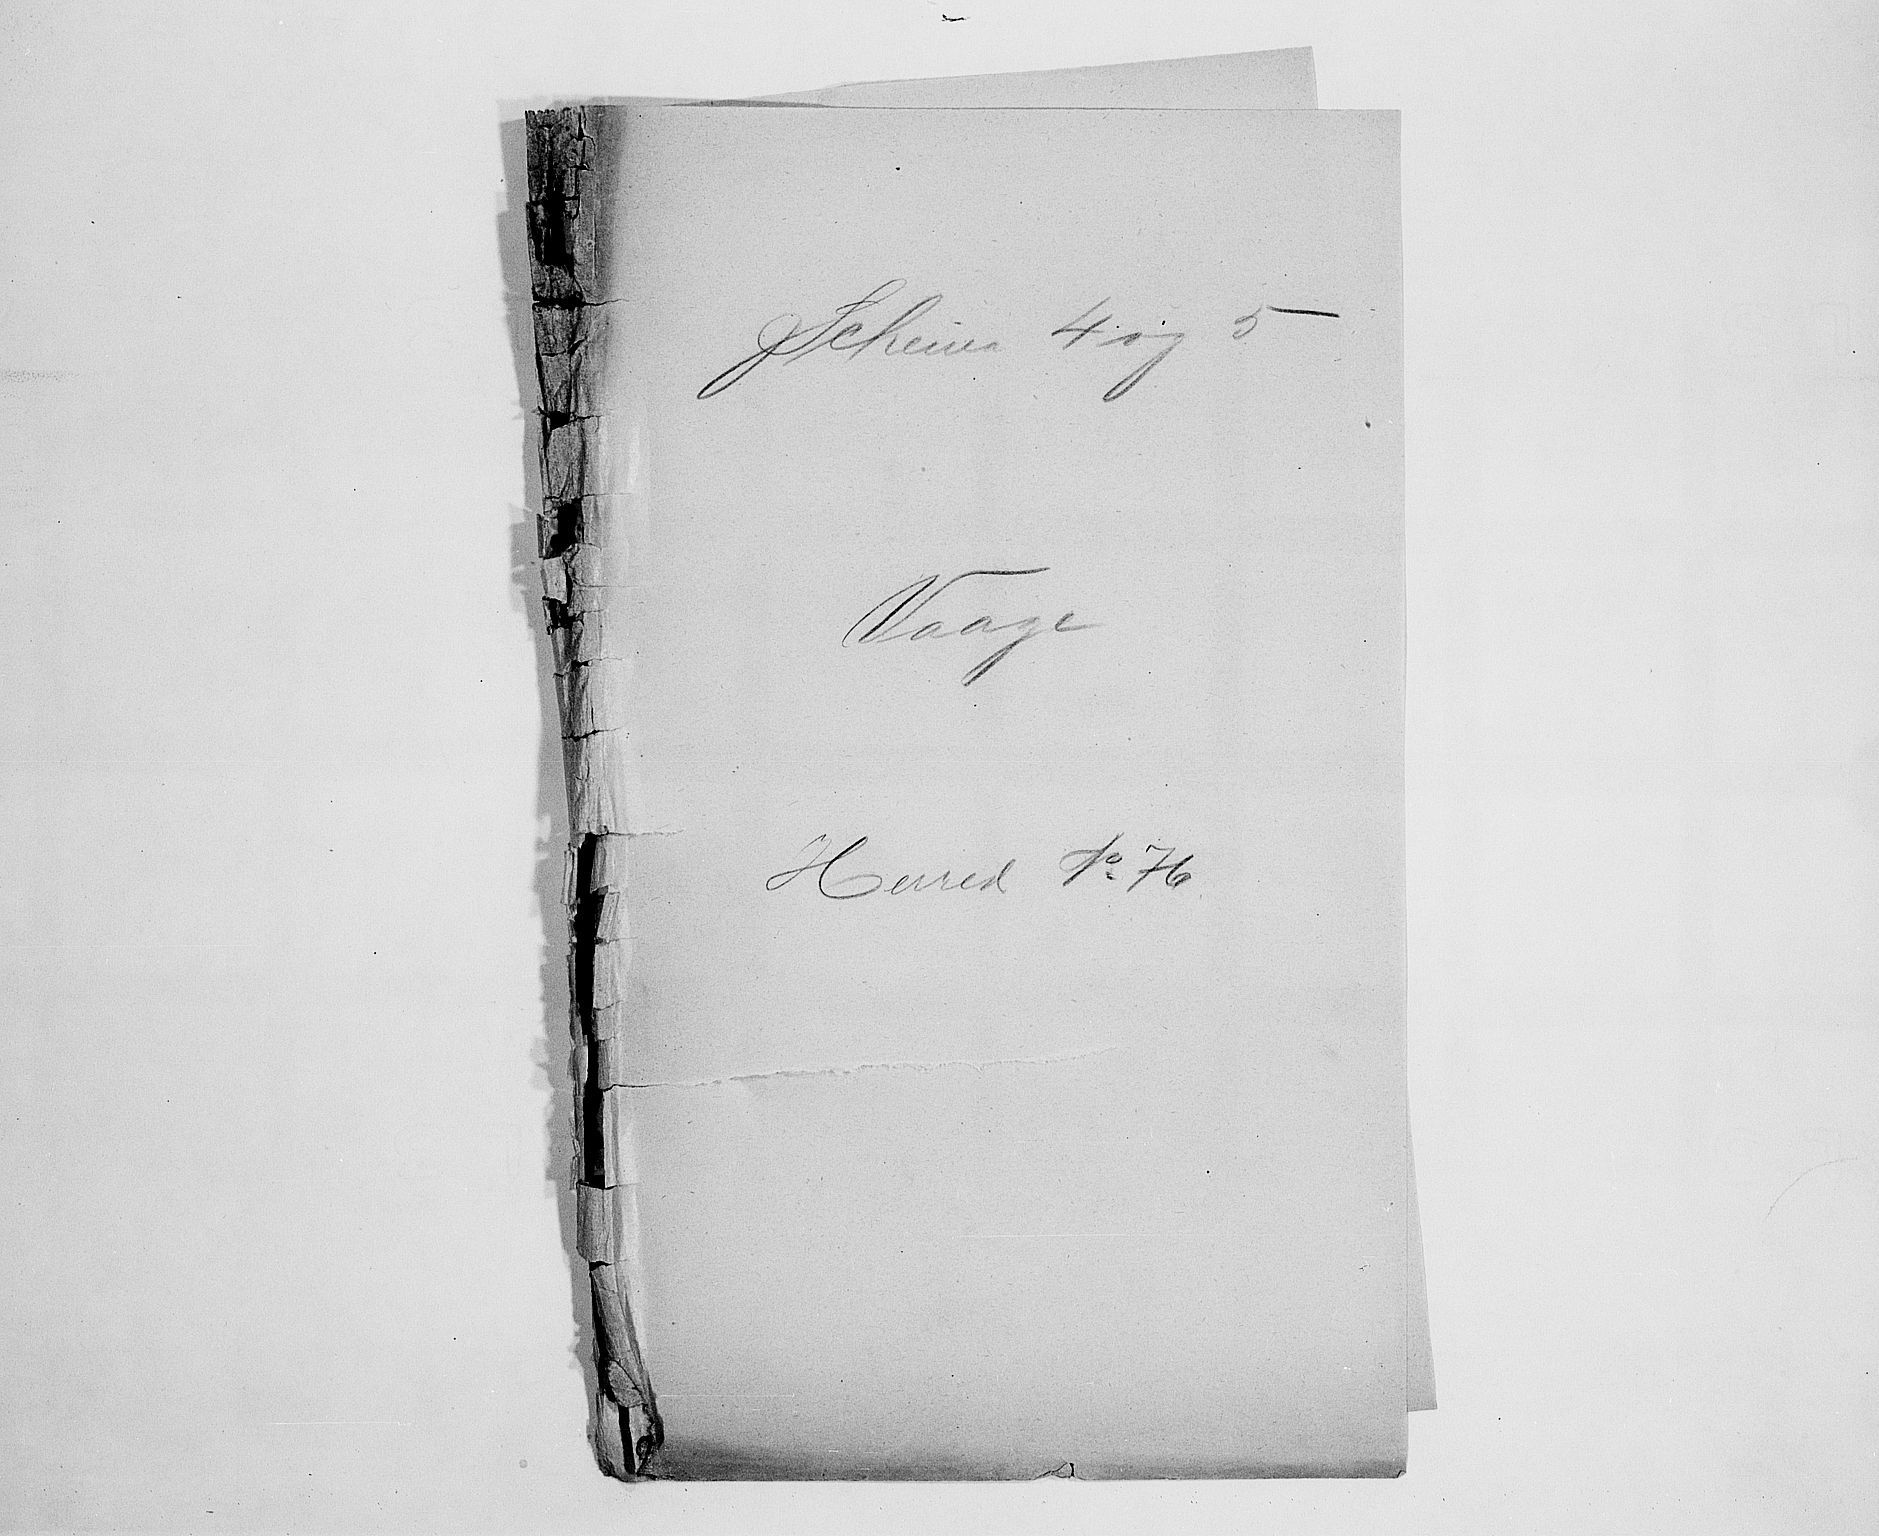 Schema 4 og 5
Vaage
Herred No 76